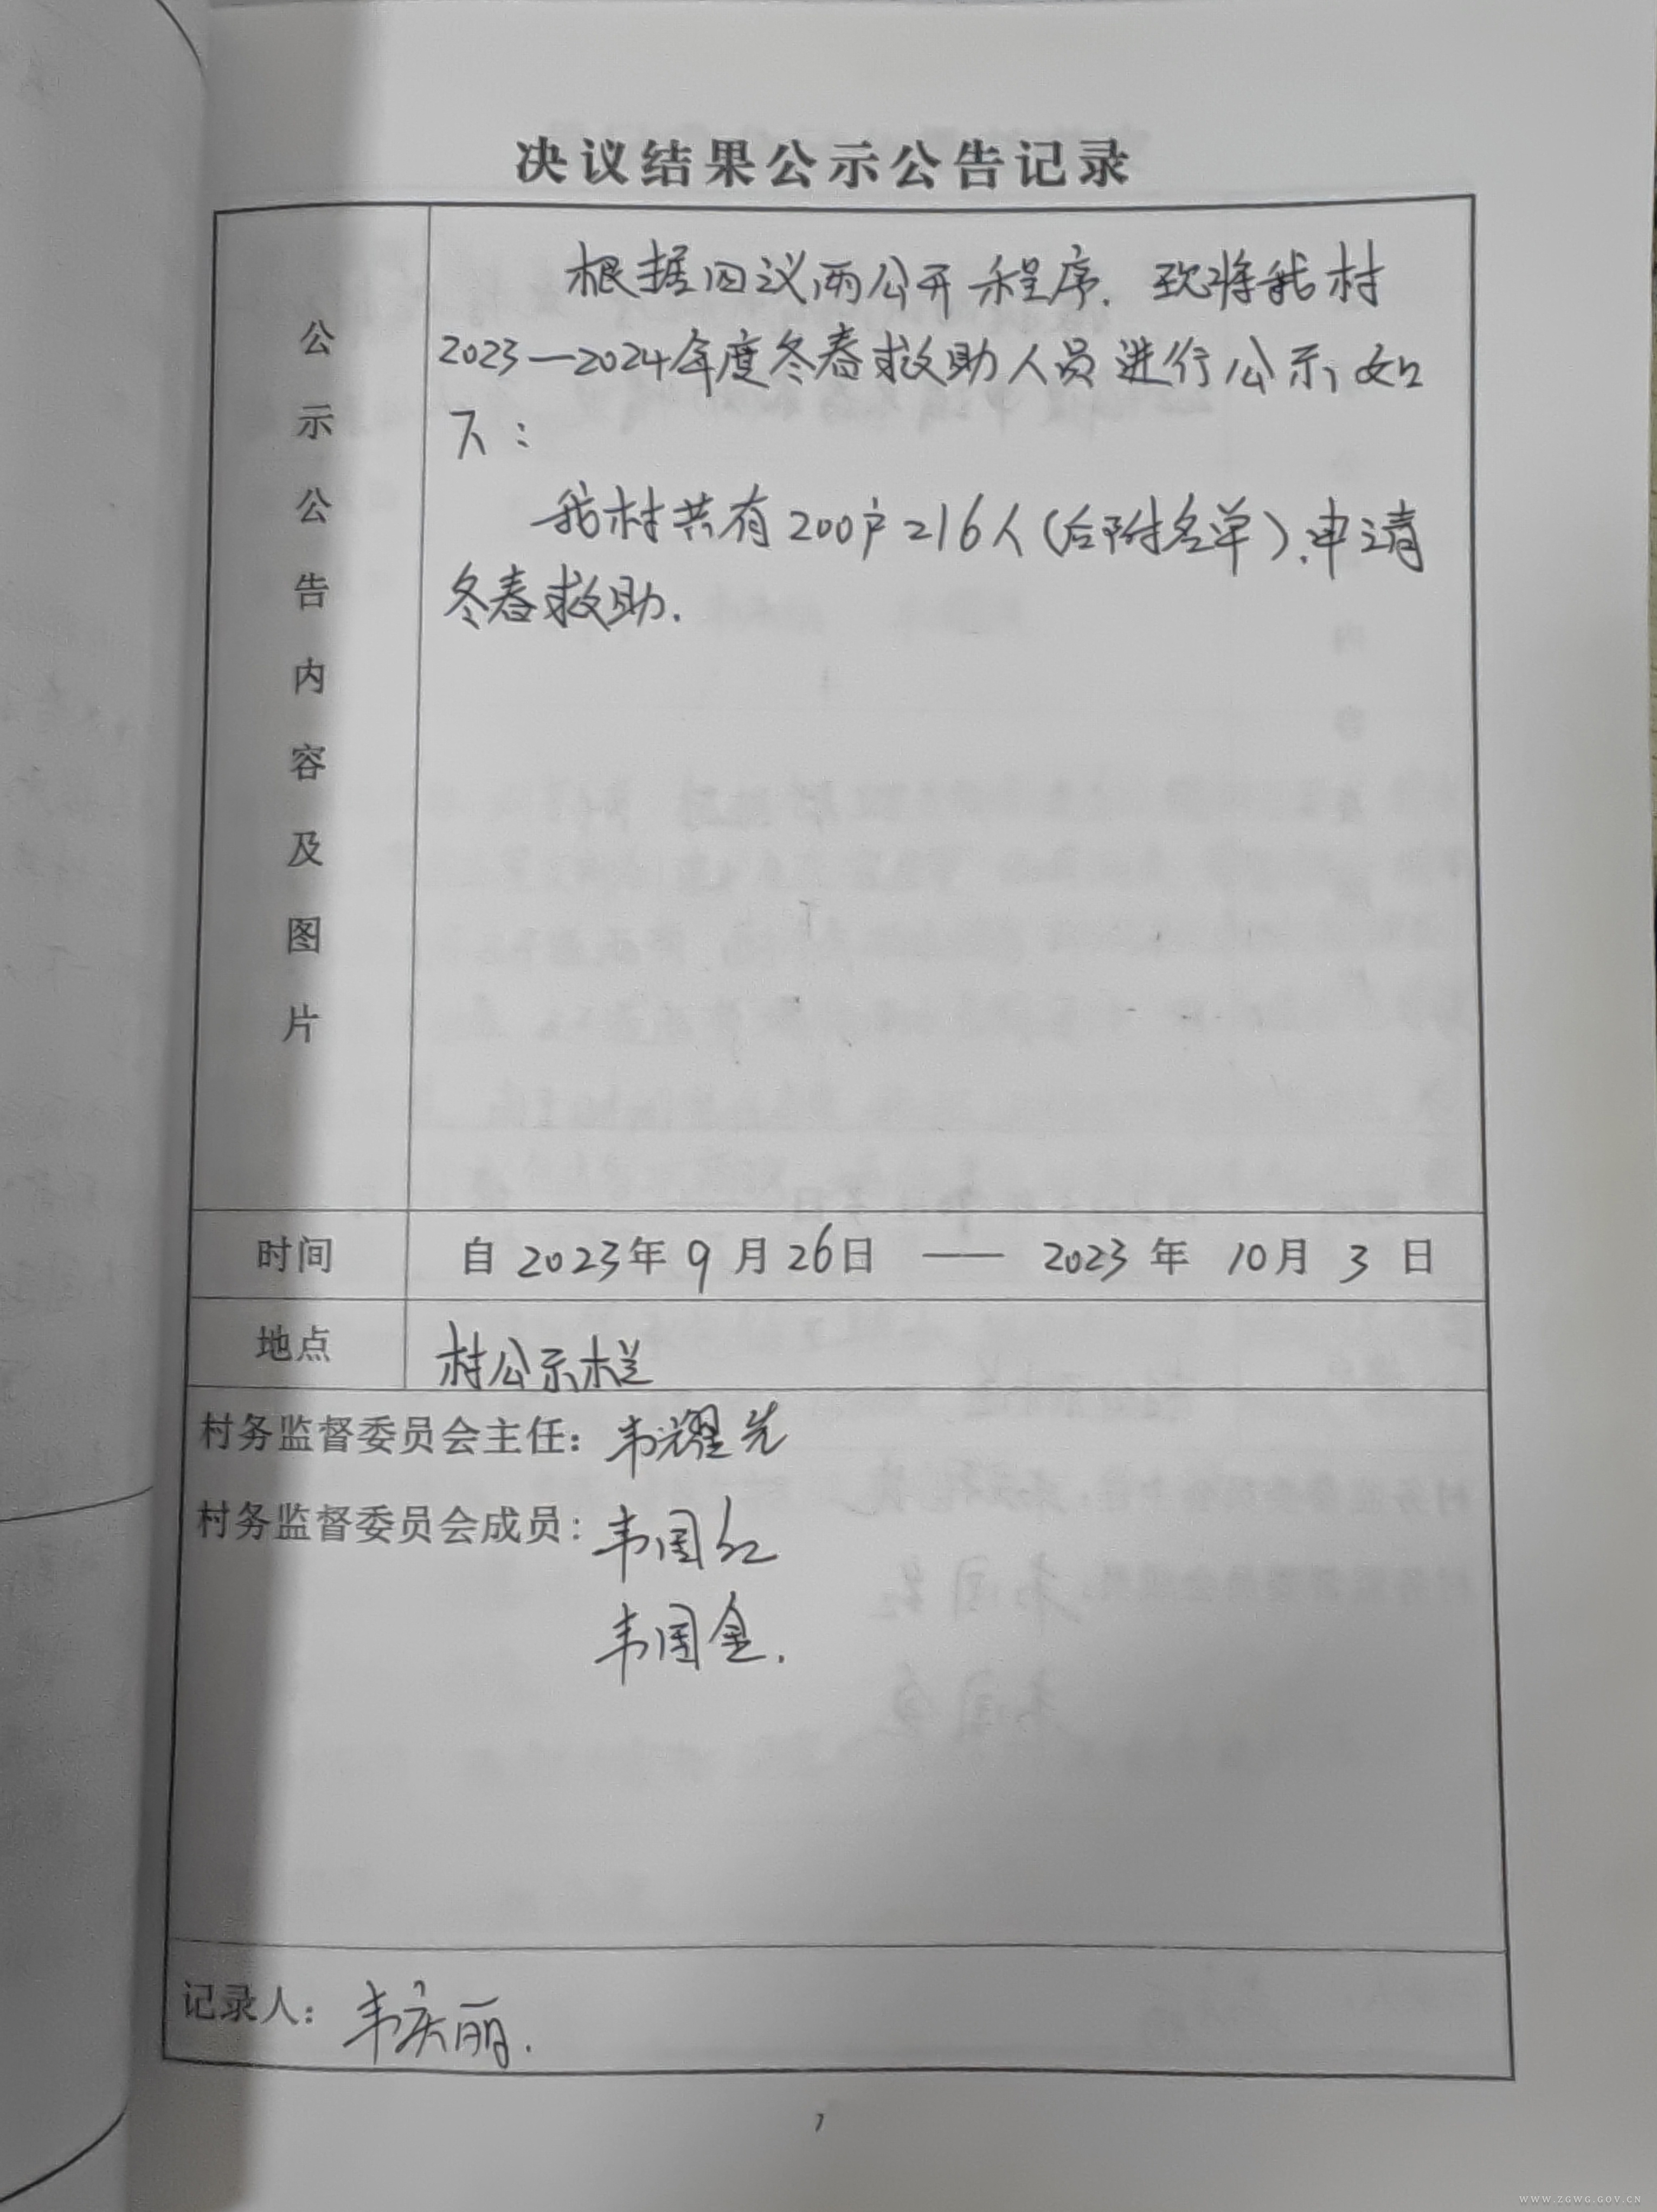 决议结果公示公告记录
公示公告内容及图片
根据四议两公开程序.现将我村
2023—2024年度冬春救助人员进行公示,如
下:
我村共有200户216人(后附名单).申请
冬春救助.
时间
自2023年9月26日——2023年10月3日
地点
村公示栏
村务监督委员会主任:韦耀先
村务监督委员会成员:韦国红
韦国金.
记录人:韦庆丽.
7
WWW.ZGWG.GOV.CN